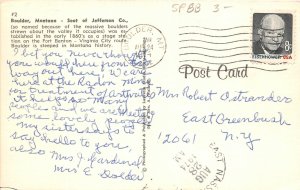 SPBB 3-
F2
Boulder, Montana - Seat of Jefferson Co.,
(so named because of the massive boulders
strewn about the valley it occupies) was es-
tablished in the early 1860's as a stage sta-
tion on the Fort Benton - Virginia City route.
Boulder is steeped in Montana history.
BOULDER
EISENHOWER·USA
8c
Post Card
you folks here from
way out here. We are
at the Radon Mine
for treatment of arthritis
it helps so many
people we meet
some lovely people
my sister says to
say hello to you,
also Mrs J Cardinal
Mrs E Dolder
Mrs Robert Ostrander
East Greenbush
N.Y
12061
EAST NASS